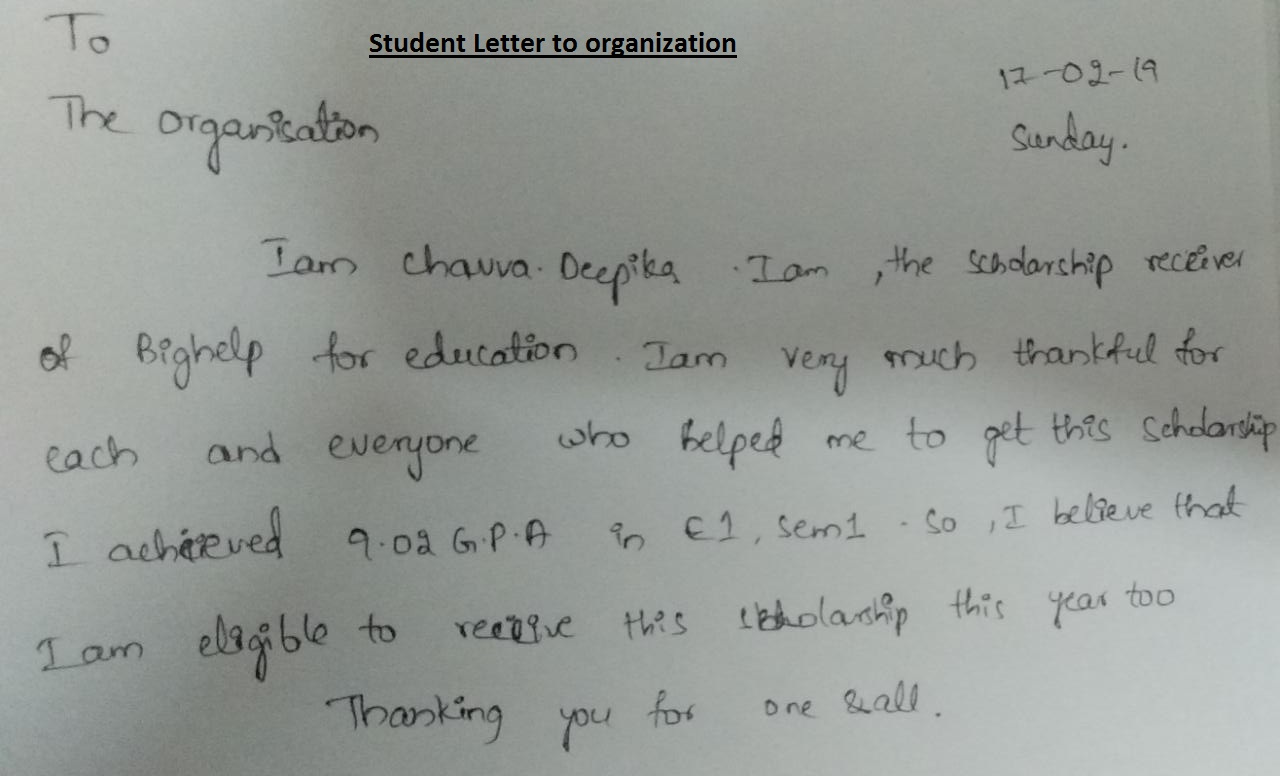 To
Student Letter to organization
17-02-19
The Organisation
Sunday.
I am Chavva. Deepika . I am , the scholarship receiver
of Bighelp for education . I am very much thankful for
each and everyone who helped me to get this scholarship
I achieved 9.02 G.P.A in E1, sem1 . So , I believe that
I am eligible to receive this scholarship this year too
Thanking you for one & all .